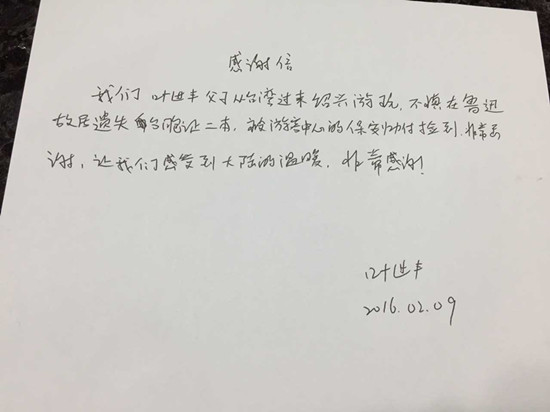 感谢信
我们叶进丰父子从台湾过来绍兴游玩,不慎在鲁迅
故居遗失台胞证二本,被游客中心的保安师付捡到,非常感
谢,让我们感受到大陆的温暖,非常感谢!
叶进丰
2016.02.09